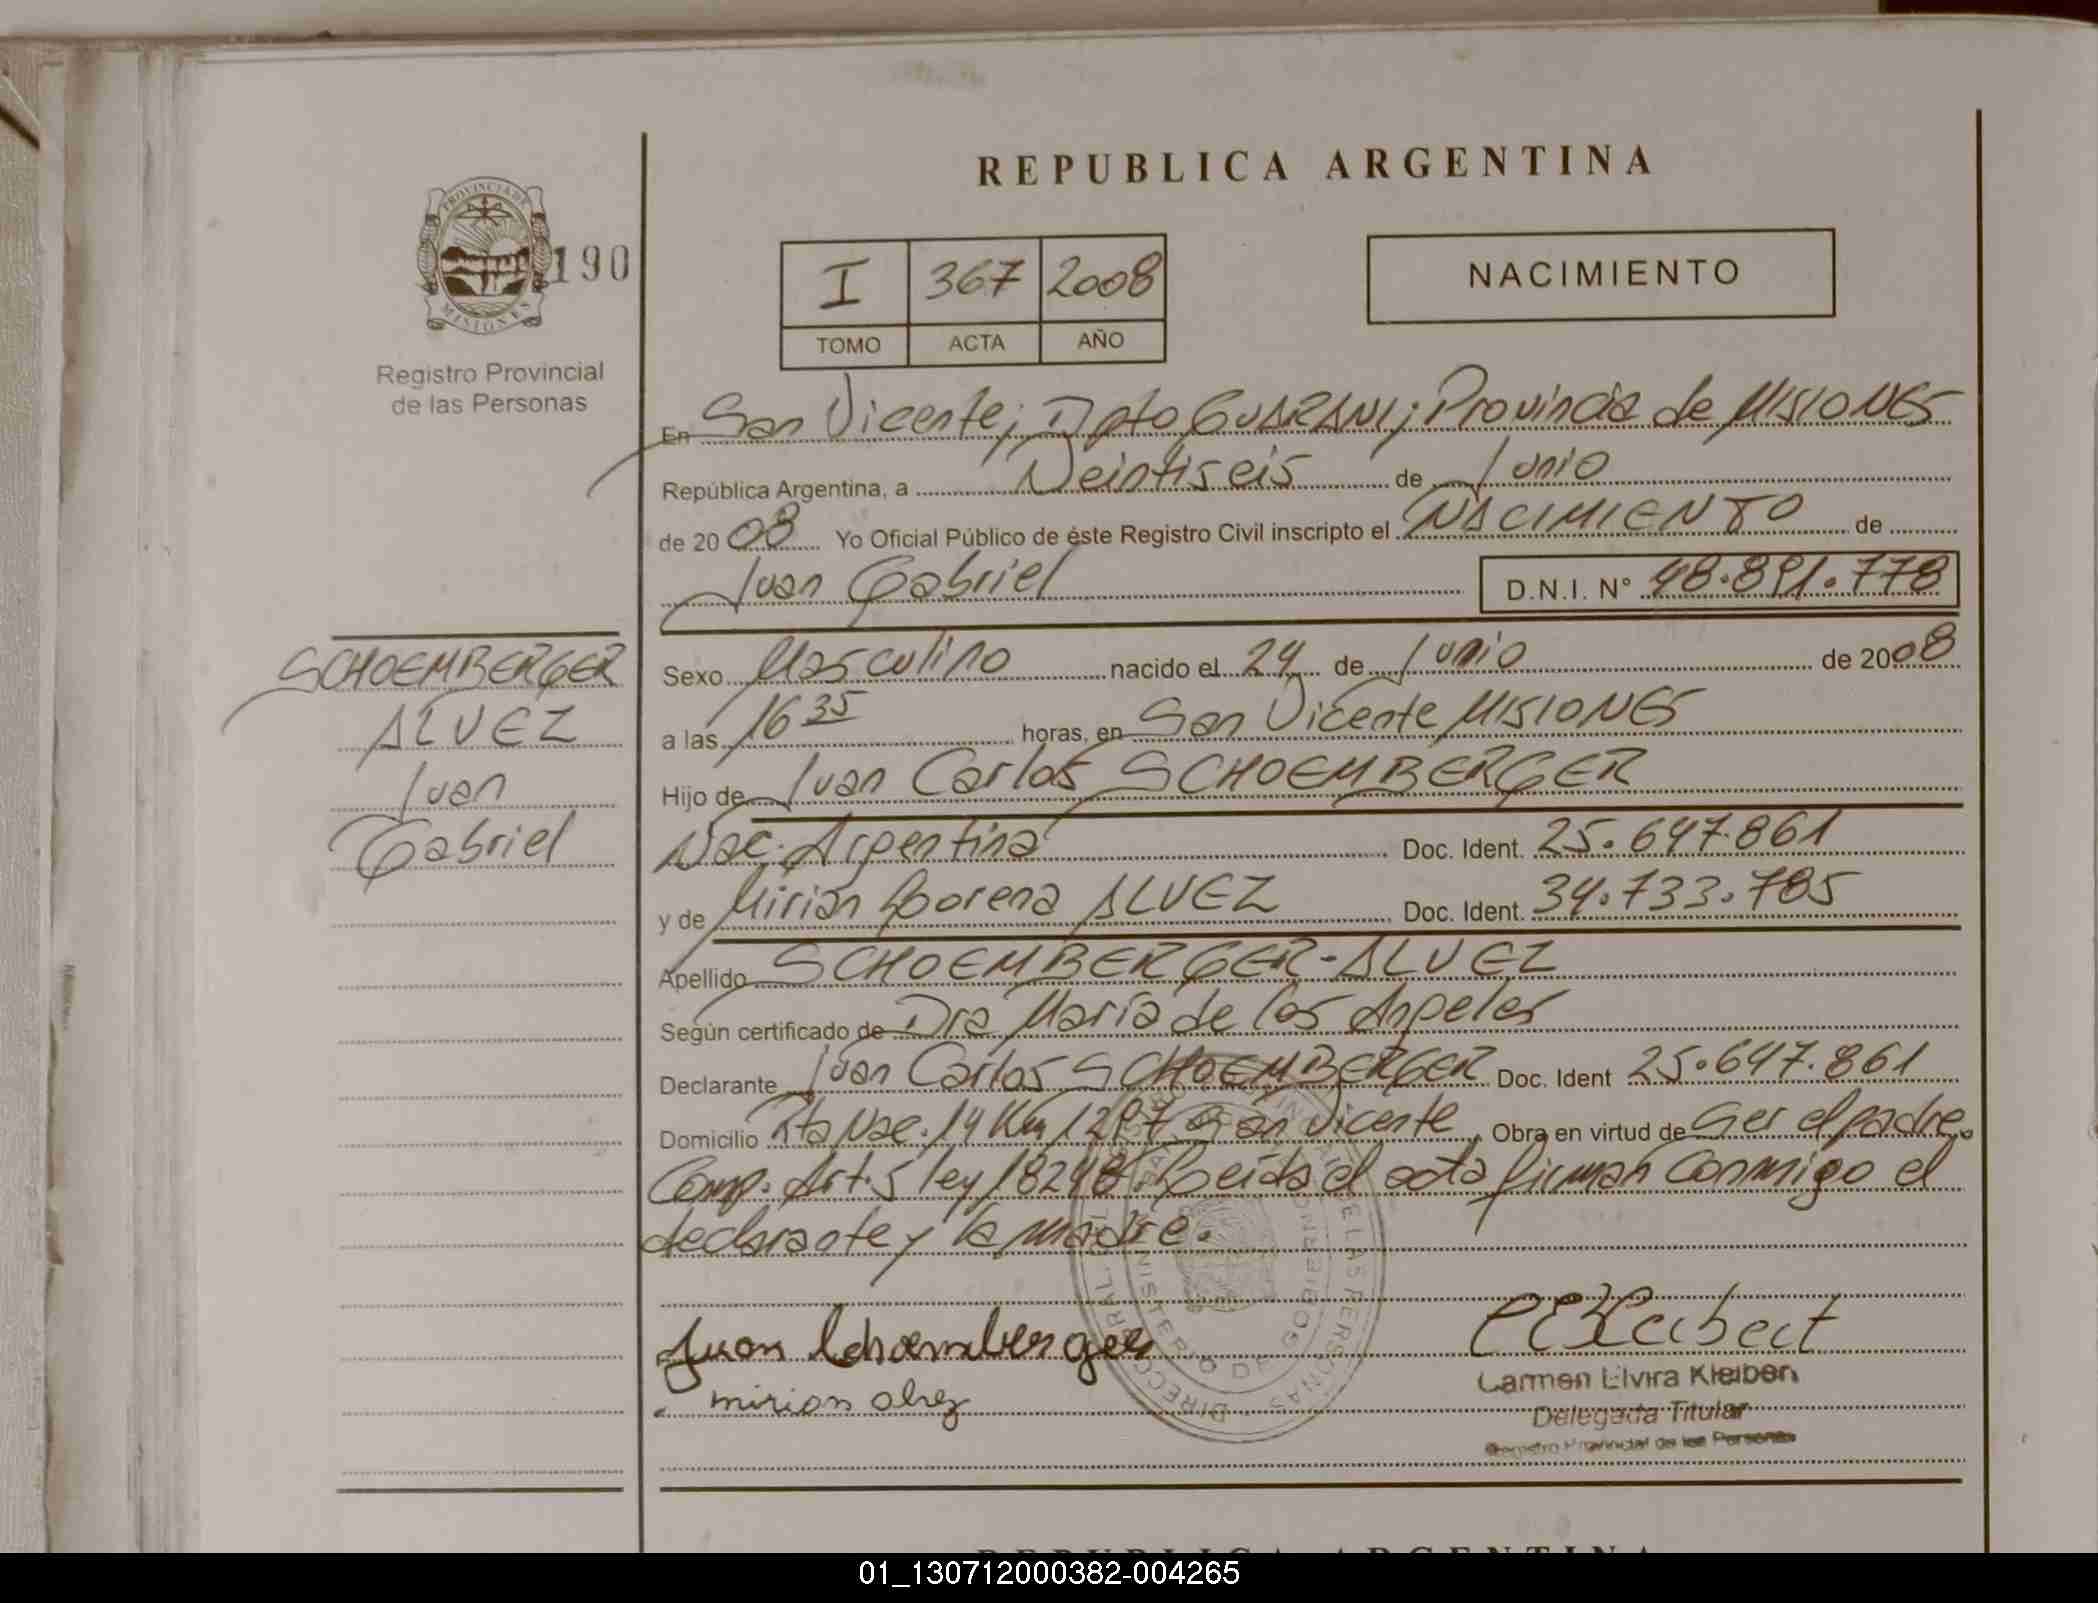 REPUBLICA ARGENTINA
PROVINCIA DE
MISIONES
190
Registro Provincial
de las Personas
I 367 2008
TOMO ACTA AÑO
NACIMIENTO
En San Vicente; Dpto GUARANI; Provincia de MISIONES
República Argentina, a Veintiseis de Junio
de 2008 Yo Oficial Público de éste Registro Civil inscripto el NACIMIENTO de
Juan Gabriel D.N.I. N° 48.891.778
SCHOEMBERGER
ALVEZ
Juan
Gabriel
Sexo Masculino nacido el 24 de Junio de 2008
a las 16 35 horas, en San Vicente MISIONES
Hijo de Juan Carlos SCHOEMBERGER
Nac. Argentina Doc. Ident. 25.647.861
y de Mirian Lorena ALVEZ Doc. Ident. 34.733.785
Apellido SCHOEMBERGER-ALVEZ
Según certificado de Dra María de los Angeles
Declarante Juan Carlos SCHOEMBERGER Doc. Ident 25.647.861
Domicilio Rta Nac. 14 Km 1297 San Vicente Obra en virtud de Ser el padre.
Comp. Art. 5 ley 18248. Leída el acta firman conmigo el
declarante y la madre.
Juan Schoemberger
mirian alvez
Carmen Elvira Kleibert
Delegada Titular
Registro Provincial de las Personas
DE LAS PERSONAS
MINISTERIO DE GOBIERNO
REPUBLICA ARGENTINA
01_130712000382-004265